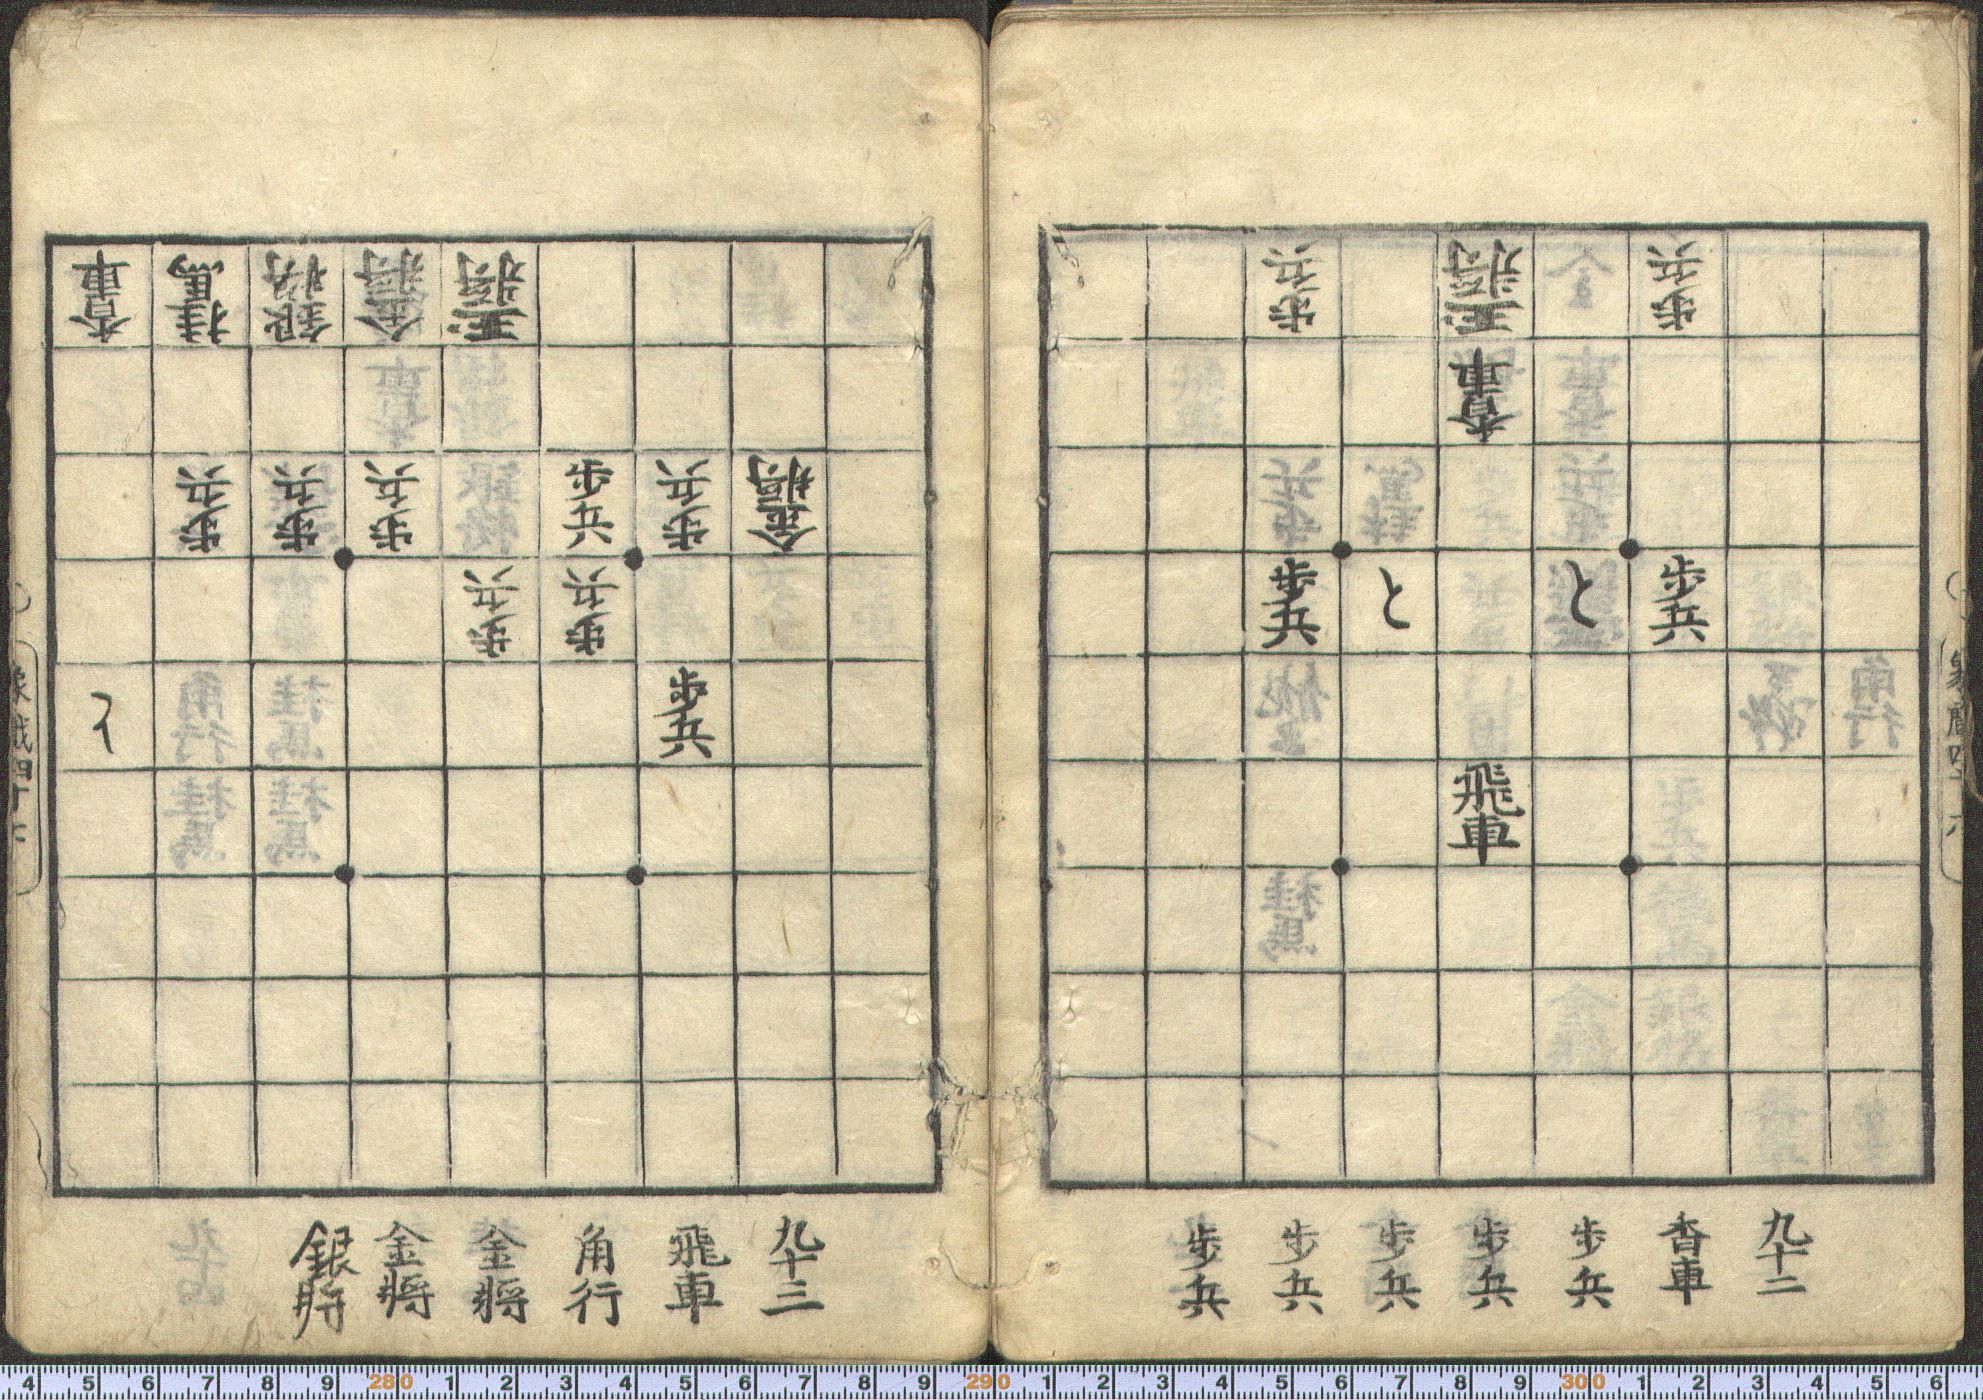 歩兵
玉將
歩兵
香車
歩兵
と
と
歩兵
飛車
九十二
香車
歩兵
歩兵
歩兵
歩兵
歩兵
玉將
金將
銀將
桂馬
香車
金將
歩兵
歩兵
歩兵
歩兵
歩兵
歩兵
歩兵
歩兵
と
九十三
飛車
角行
金將
金將
銀將